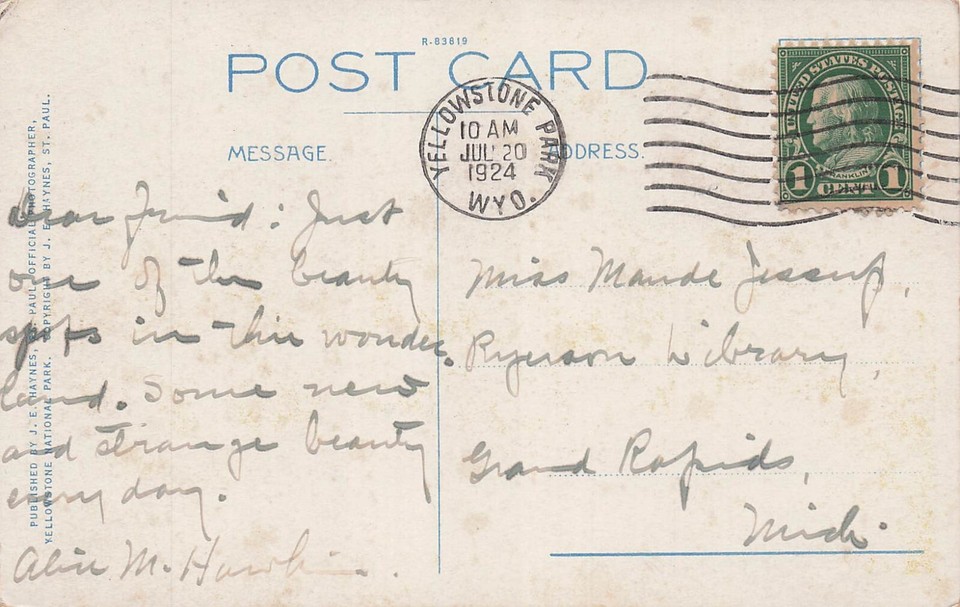 R-83619
POST CARD
MESSAGE.
ADDRESS.
YELLOWSTONE PARK
10 AM
JUL 20
1924
WYO.
UNITED STATES POSTAGE
FRANKLIN
1 CENT 1
PUBLISHED BY J. E. HAYNES, ST. PAUL, OFFICIAL PHOTOGRAPHER,
YELLOWSTONE NATIONAL PARK. COPYRIGHT BY J. E. HAYNES, ST. PAUL.
Dear Friend: Just
one of the beauty
spots in this wonder-
land. Some new
and strange beauty
every day.
M.
Miss Maude Jessup,
Ryerson Library,
Grand Rapids,
Mich.